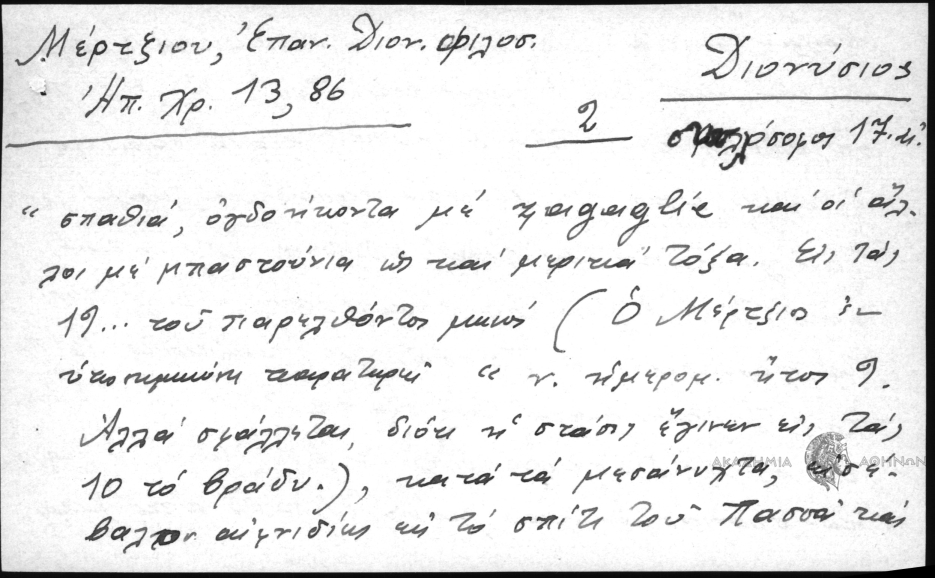 Μέρτζιου, Ἐπαν. Διον. φιλοσ.
Ἠπ. Χρ. 13, 86
Διονύσιος
2
17. αἰ.
“ σπαθιά, ὀγδοήκοντα μέ καὶ οἱ ἄλ-
λοι μέ μπαστούνια καί μερικά τόξα. Εἰς τάς
19... τοῦ παρελθόντος μηνός ( Ὁ Μέρτζιος ἐν
ὑποσημειώσει παρατηρεῖ “ ν. ἡμερομ. ἤτοι 9.
Ἀλλά σφάλλεται, διότι ἡ στάσις ἔγινεν εἰς τάς
10 τό βράδυ.), κατά τά μεσάνυχτα, εἰσέ-
βαλλον αἰφνιδίως εἰς τό σπίτι τοῦ Πασσᾶ καί
ΑΚΑΔΗΜΙΑ ΑΘΗΝΩΝ